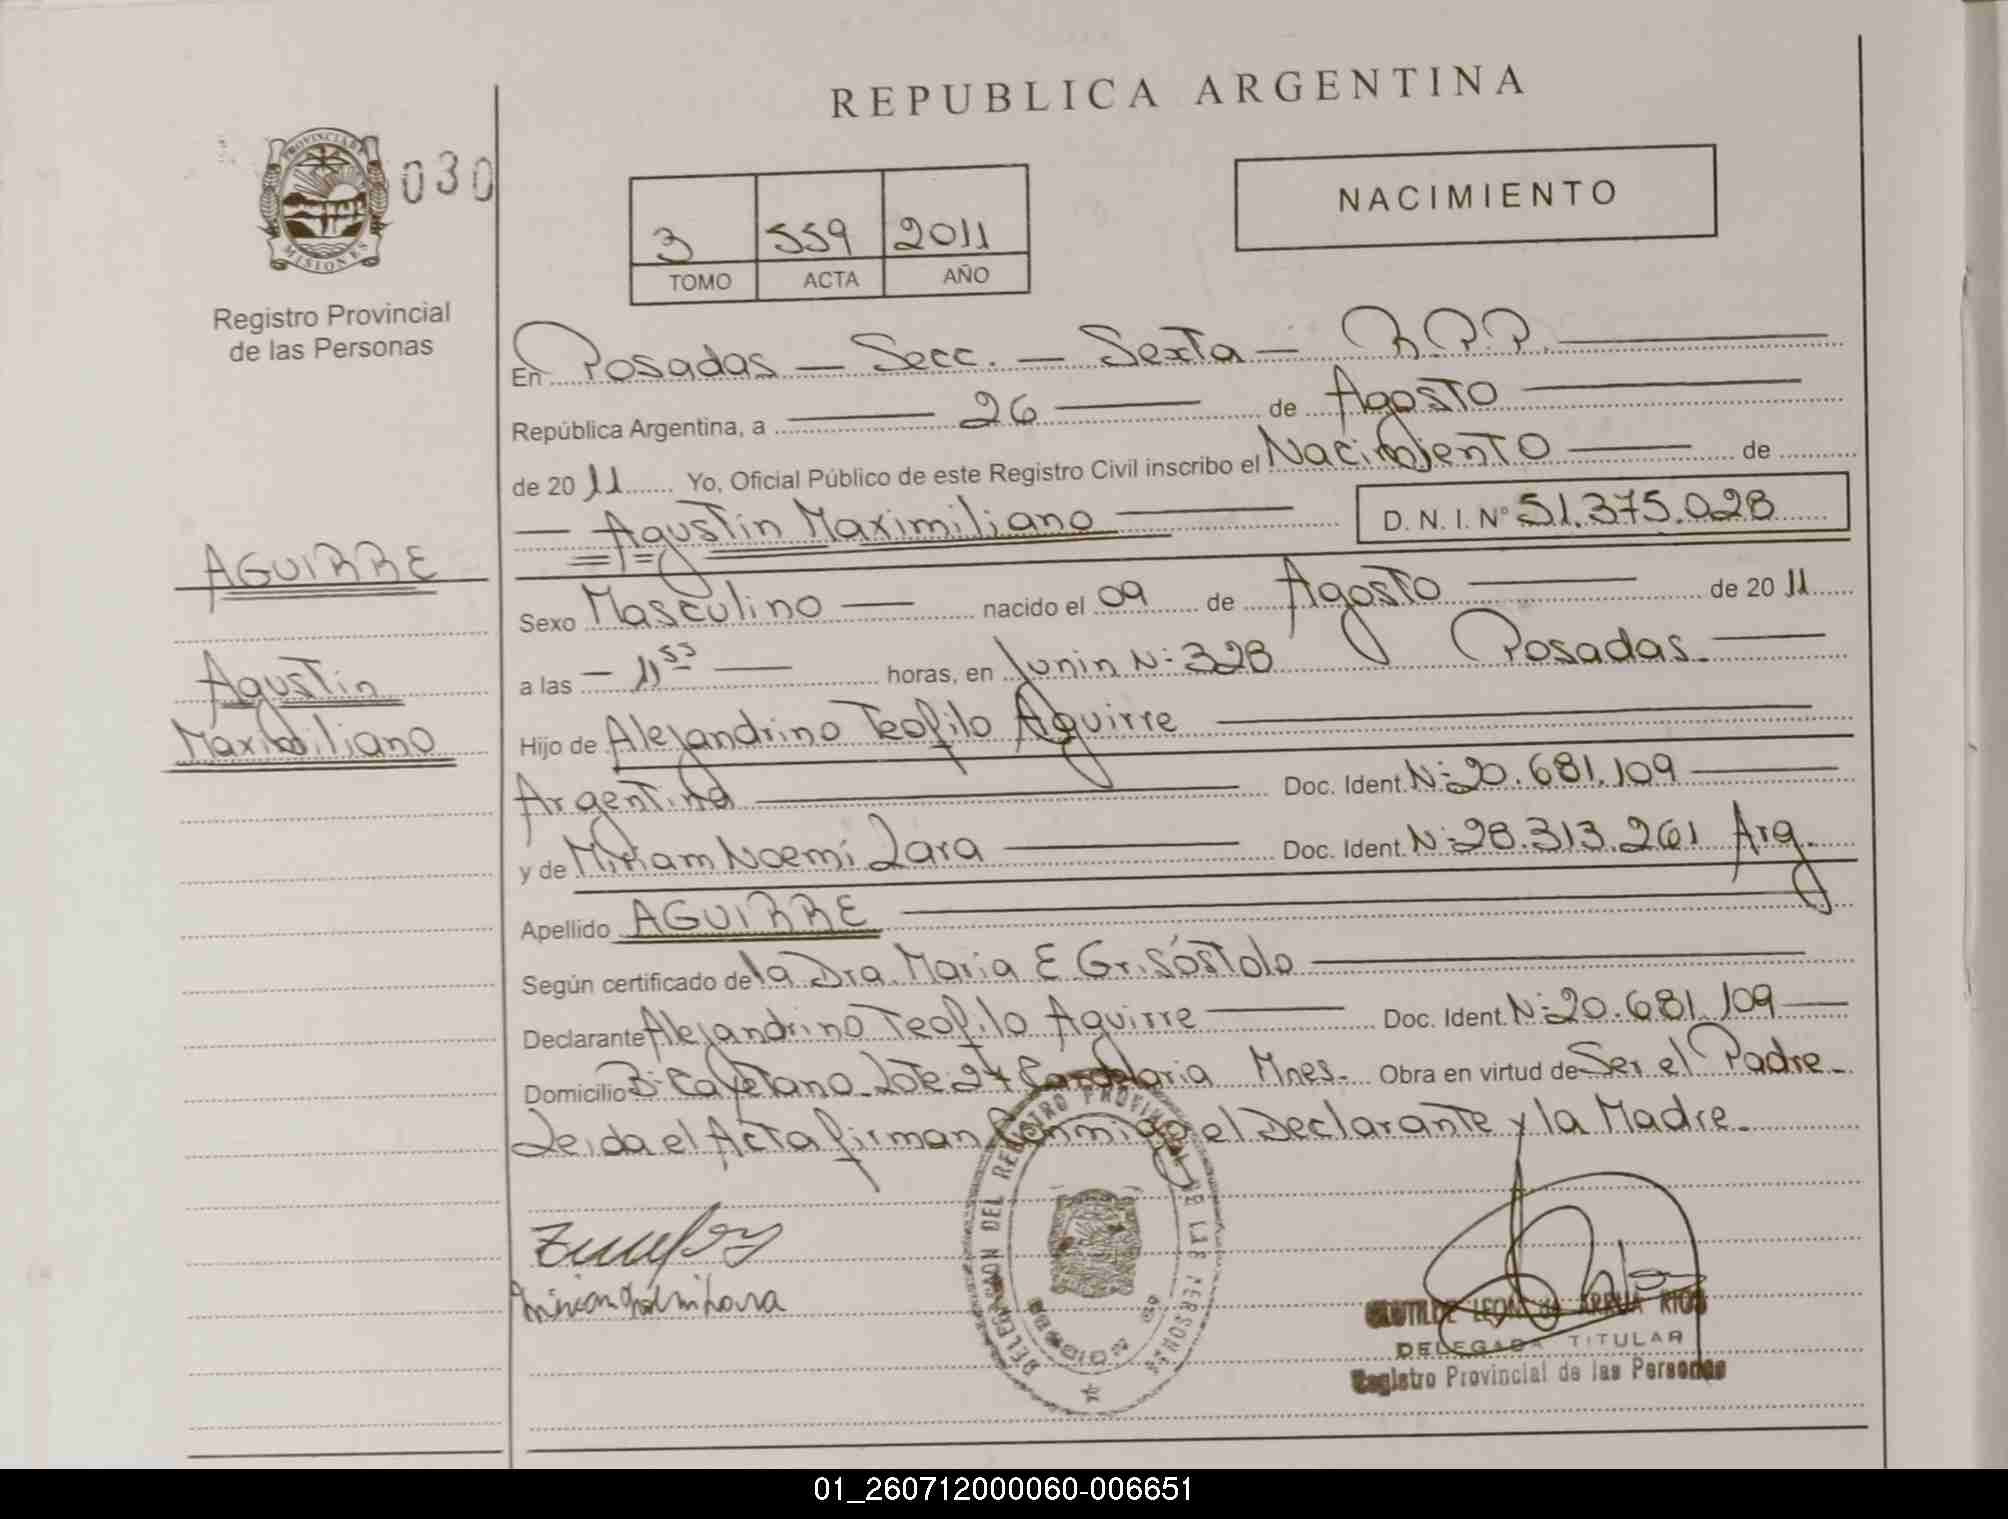 REPUBLICA ARGENTINA
PROVINCIA DE
MISIONES
030
Registro Provincial
de las Personas
3 559 2011
TOMO ACTA AÑO
NACIMIENTO
En Posadas — Secc. — Sexta — R.P.P.
República Argentina, a 26 de Agosto
de 2011 Yo, Oficial Público de este Registro Civil inscribo el Nacimiento de
Agustin Maximiliano D. N. I. Nº 51.375.028
AGUIRRE
Agustin
Maximiliano
Sexo Masculino nacido el 09 de Agosto de 2011
a las 11 53 horas, en Junin N: 328 Posadas.
Hijo de Alejandrino Teofilo Aguirre
Argentina Doc. Ident. N: 20.681.109
y de Miriam Noemi Lara Doc. Ident. N: 28.313.261 Arg.
Apellido AGUIRRE
Según certificado de la Dra. Maria E Grisóstolo
Declarante Alejandrino Teofilo Aguirre Doc. Ident. N: 20.681.109
Domicilio B: Cayetano Lote 27 Candelaria Mnes. Obra en virtud de Ser el Padre
Leida el Acta firman Conmigo el Declarante y la Madre.
DELEGACION DEL REGISTRO PROVINCIAL DE LAS PERSONAS
CLOTILDE LEON de ARRUA RIOS
DELEGADA TITULAR
Registro Provincial de las Personas
01_260712000060-006651